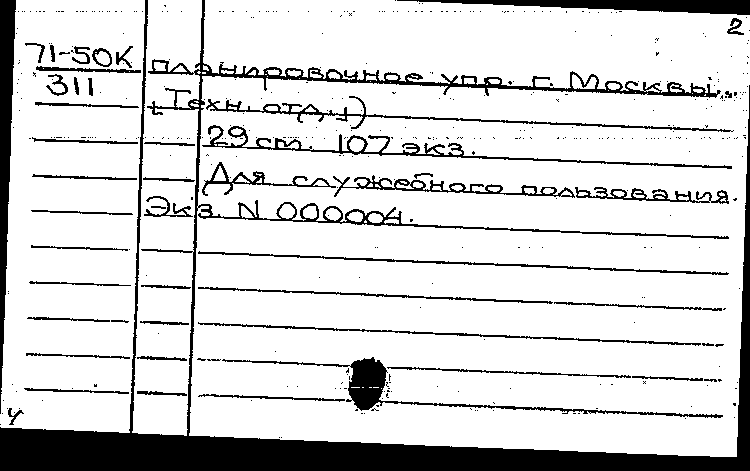 2
71-50К планировочное упр. г. Москвы...
311 Техн. отд.)
29 ст. 107 экз.
Для служебного пользования.
Экз. N 000004.